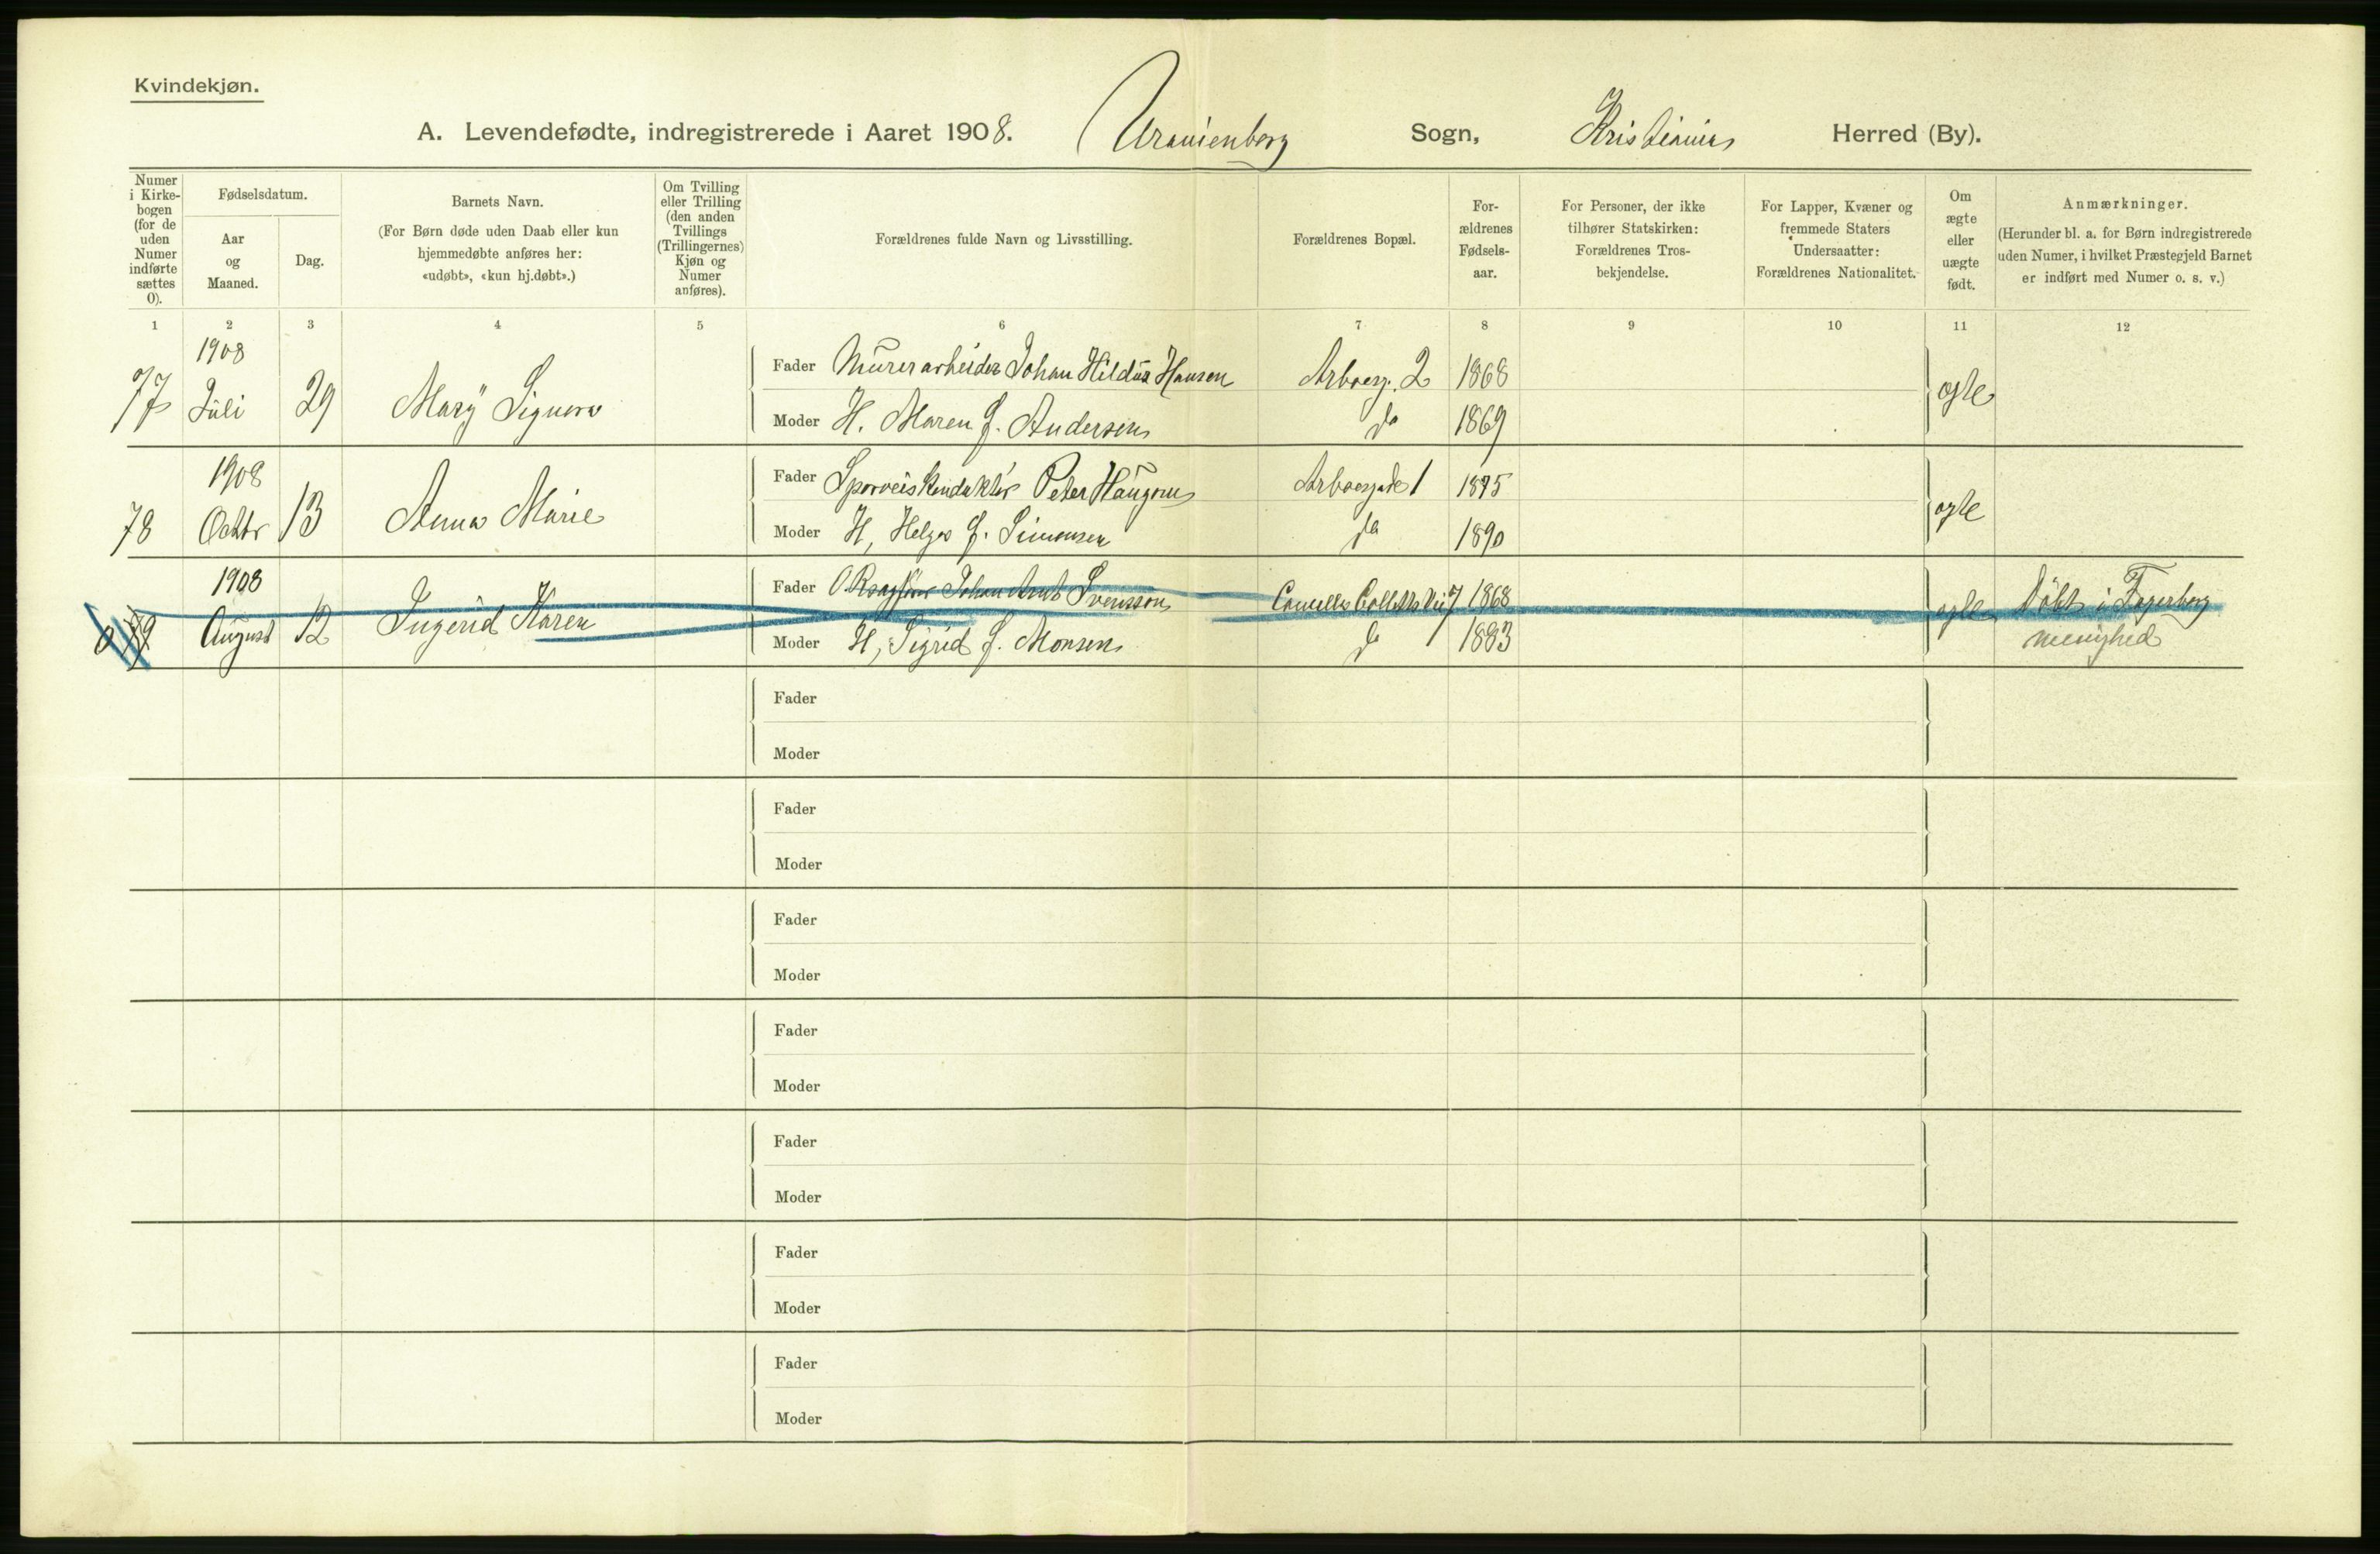 Kvindekjøn.
A. Levendefødte, indregistrerede i Aaret 1908. Uranienborg Sogn, Kristiania Herred (By).
Numer i Kirkebogen (for de uden Numer indførte sættes 0).
Fødselsdatum.
Aar og Maaned.
Dag.
Barnets Navn.
(For Børn døde uden Daab eller kun
hjemmedøbte anføres her:
«udøbt», «kun hj.døbt».)
Om Tvilling
eller Trilling
(den anden
Tvillings
(Trillingernes)
Kjøn og
Numer
anføres).
Forældrenes fulde Navn og Livsstilling.
Forældrenes Bopæl.
For-
ældrenes
Fødsels-
aar.
For Personer, der ikke
tilhører Statskirken:
Forældrenes Tros-
bekjendelse.
For Lapper, Kvæner og
fremmede Staters
Undersaatter:
Forældrenes Nationalitet.
Om
ægte
eller
uægte
født.
Anmærkninger.
(Herunder bl. a. for Børn indregistrerede
uden Numer, i hvilket Præstegjeld Barnet
er indført med Numer o. s. v.)
1 2 3 4 5 6 7 8 9 10 11 12
1908
77 Juli 29 Mary Signora
Fader Murerarbeider Johan Hildur Hansen Arboesg. 2 1868 ægte
Moder H. Maren f. Andersen do 1869
1908
78 Octbr 13 Anna Marie
Fader Sporveiskonduktør Peter Haugerus Arboesgade 1 1875 ægte
Moder H, Helga f. Simensen do 1890
1908
0 79 August 12 Ingerid Karen
Fader O.R.sagfører Johan Arnt Svensson Camilla Colletts Vei 7 1868 ægte Døbt i Fagerborg
Moder H, Sigrid f. Monsen do 1883 menighed
Fader
Moder
Fader
Moder
Fader
Moder
Fader
Moder
Fader
Moder
Fader
Moder
Fader
Moder